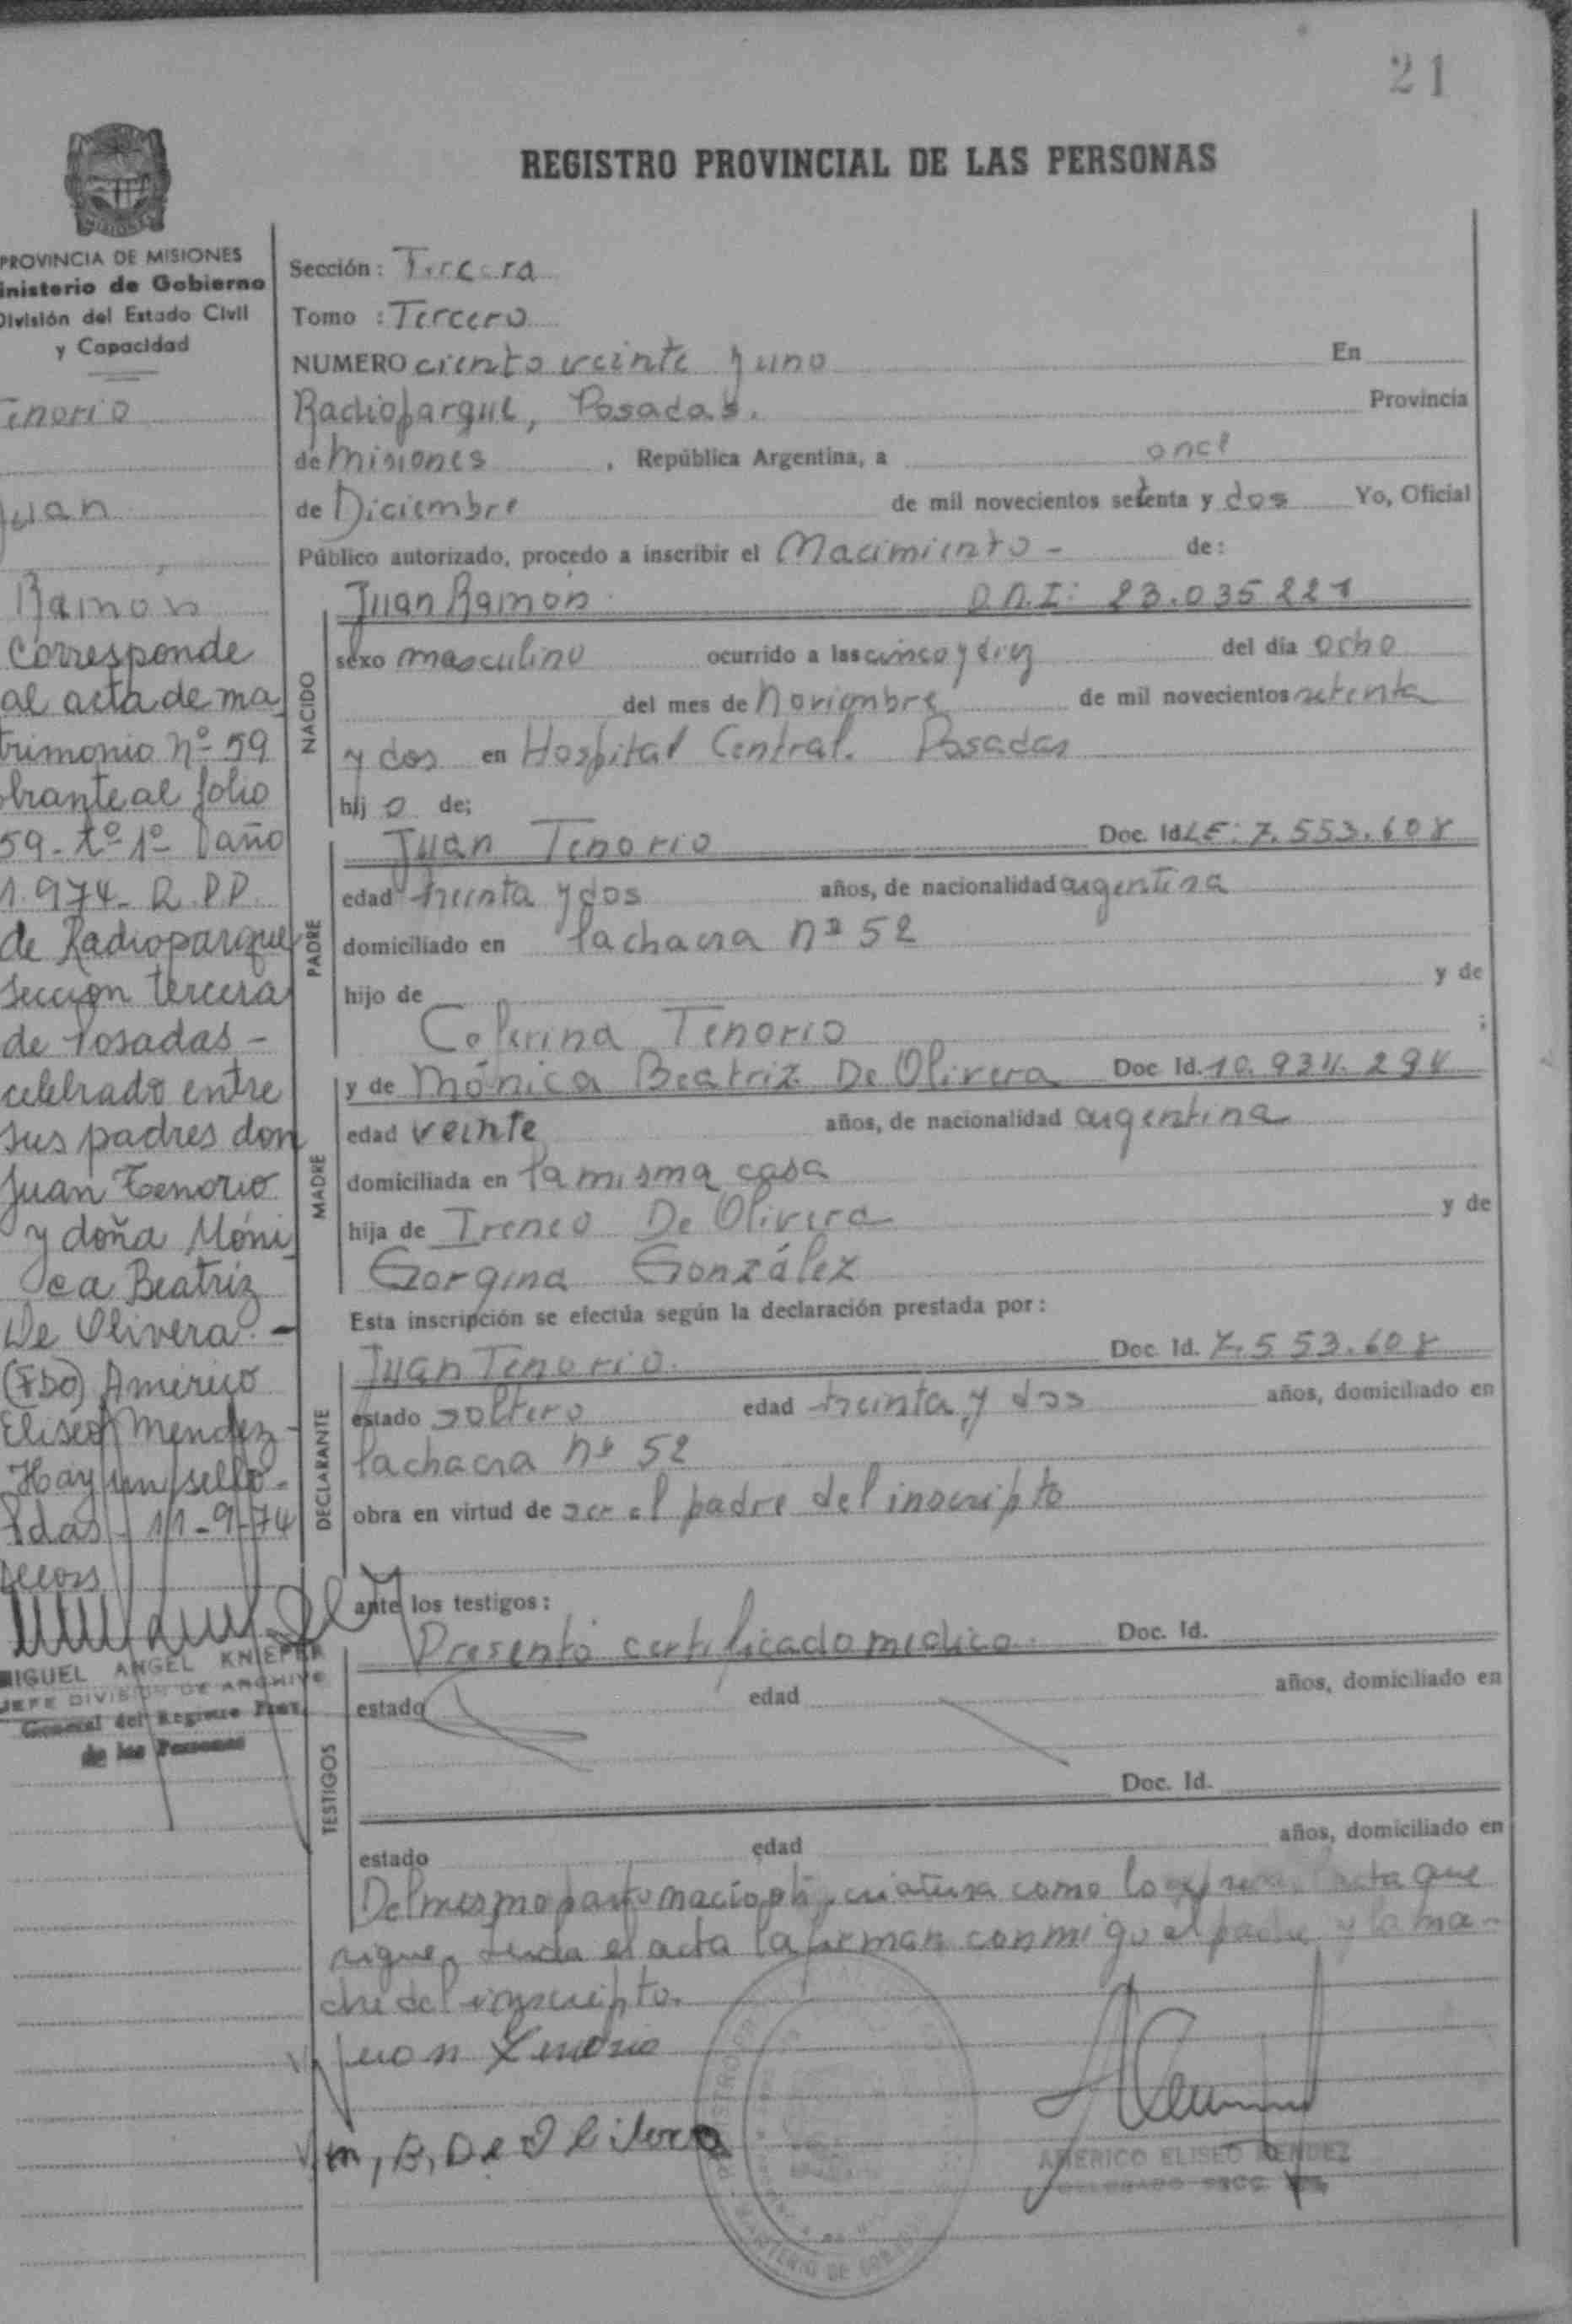 21
REGISTRO PROVINCIAL DE LAS PERSONAS
MISIONES
PROVINCIA DE MISIONES
inisterio de Gobierno
División del Estado Civil
y Capacidad
enorio
Juan
Ramón
Corresponde
al acta de ma
trimonio nº 59
obrante al folio
59 - tº 1º año
1.974 - R.P.P.
de Radioparque
sección tercera
de Posadas -
celebrado entre
sus padres don
Juan Tenorio
y doña Móni
ca Beatriz
De Olivera. -
(FDO) Américo
Eliseo Mendez -
Hay un sello -
Pdas - 11-9-74
MIGUEL ANGEL KNIEPER
JEFE DIVISION DE ARCHIVO
General del Registro Prov.
de las Personas
Sección: Tercera
Tomo: Tercero
NUMERO ciento veinte y uno En
Radioparque, Posadas. Provincia
de Misiones, República Argentina, a once
de Diciembre de mil novecientos setenta y dos Yo, Oficial
Público autorizado, procedo a inscribir el Nacimiento - de:
Juan Ramón D.N.I: 23.035.221
NACIDO
sexo masculino ocurrido a las cinco y diez del día ocho
del mes de Noviembre de mil novecientos setenta
y dos en Hospital Central. Posadas
hij o de;
PADRE
Juan Tenorio Doc. Id LE: 7.553.608
edad treinta y dos años, de nacionalidad argentina
domiciliado en la chacra nº 52
hijo de y de
Ceferina Tenorio ;
MADRE
y de Mónica Beatriz De Olivera Doc. Id. 10.934.294
edad veinte años, de nacionalidad argentina
domiciliada en la misma casa
hija de Ireneo De Olivera y de
Gorgina González
Esta inscripción se efectúa según la declaración prestada por:
DECLARANTE
Juan Tenorio. Doc. Id. 7.553.608
estado soltero edad treinta y dos años, domiciliado en
la chacra nº 52
obra en virtud de ser el padre del inscripto
ante los testigos:
TESTIGOS
Presentó certificado medico. Doc. Id.
estado edad años, domiciliado en
Doc. Id.
estado edad años, domiciliado en
Del mismo parto nació otra criatura como lo expresa el acta que
sigue, leida el acta la firman conmigo el padre y la ma-
dre del inscripto.
Juan Tenorio
M, B, De Olivera
AMERICO ELISEO MENDEZ
DELEGADO SECC.
MINISTERIO DE GOBIERNO